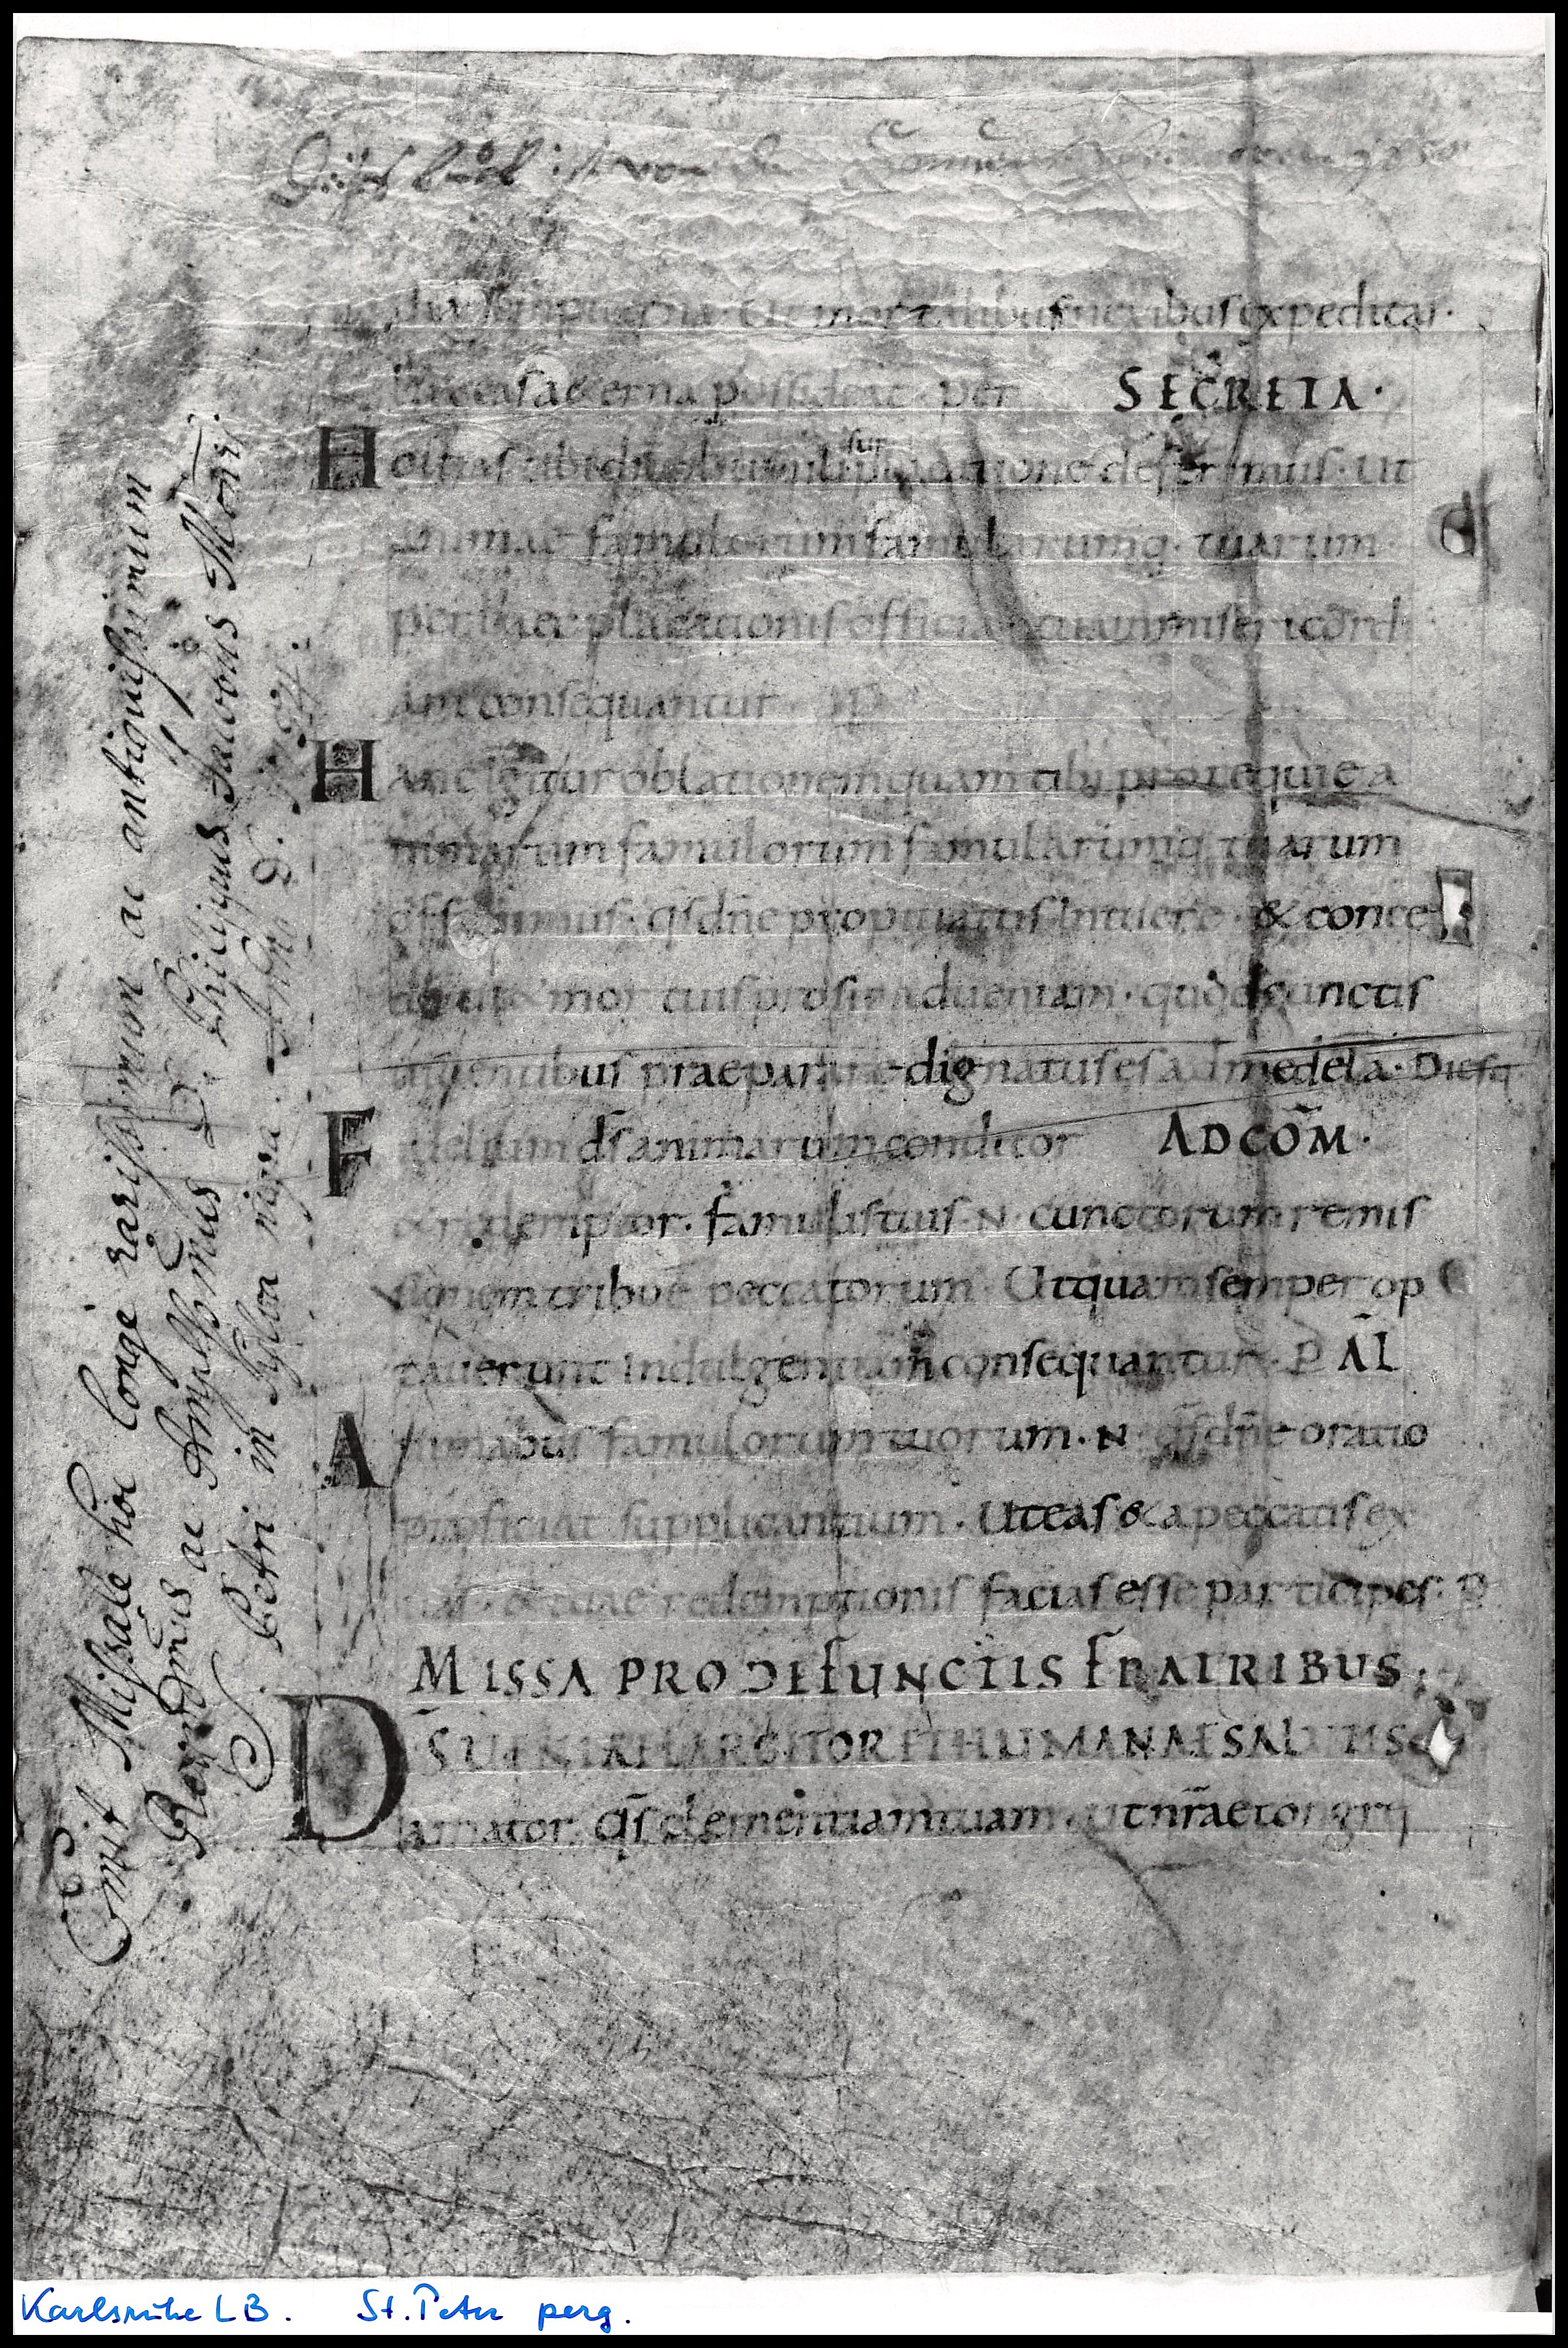 buch ist von
ut mortalibus nexibus expeditas
aeterna possideat · per SECRETA ·
Hostias tibi dne humili sup placatione deferimus · Ut
animae famulorum famularumq · tuarum
per haec placationis officia tuam misericordi
am consequantur · P
Hanc igitur oblationem quam tibi pro requie a
nimarum famulorum famularumq tuarum
offerimus · qs dne propitiatus intuere · & conce
de ut & mortuis prosit ad ueniam · quod cunctis
uiuentibus praeparare dignatus es ad medela · Diesq
Fidelium ds animarum conditor ADCOM̄ ·
& redemptor · famulis tuis · N · cunctorum remis
sionem tribue peccatorum · Ut quam semper op
tauerunt indulgentiam consequantur · P AL̄
Animabus famulorum tuorum · N · qs dne oratio
proficiat supplicantium · Ut eas & a peccatis ex
uas · & tuae redemptionis facias esse participes · P
MISSA PRO DEFUNCTIS FRATRIBUS ·
DS̄ UENIAE LARGITOR ET HUMANAE SALUTIS
amator qs clementiam tuam · ut nrae congrę
Emit Missale hoc longè rarissimum ac antiquissimum
Reverdmus ac Amplssmus D. D. Philippus Jacobus Monrij
S. Petri in Sylva nigra
Karlsruhe LB. St. Peter perg.